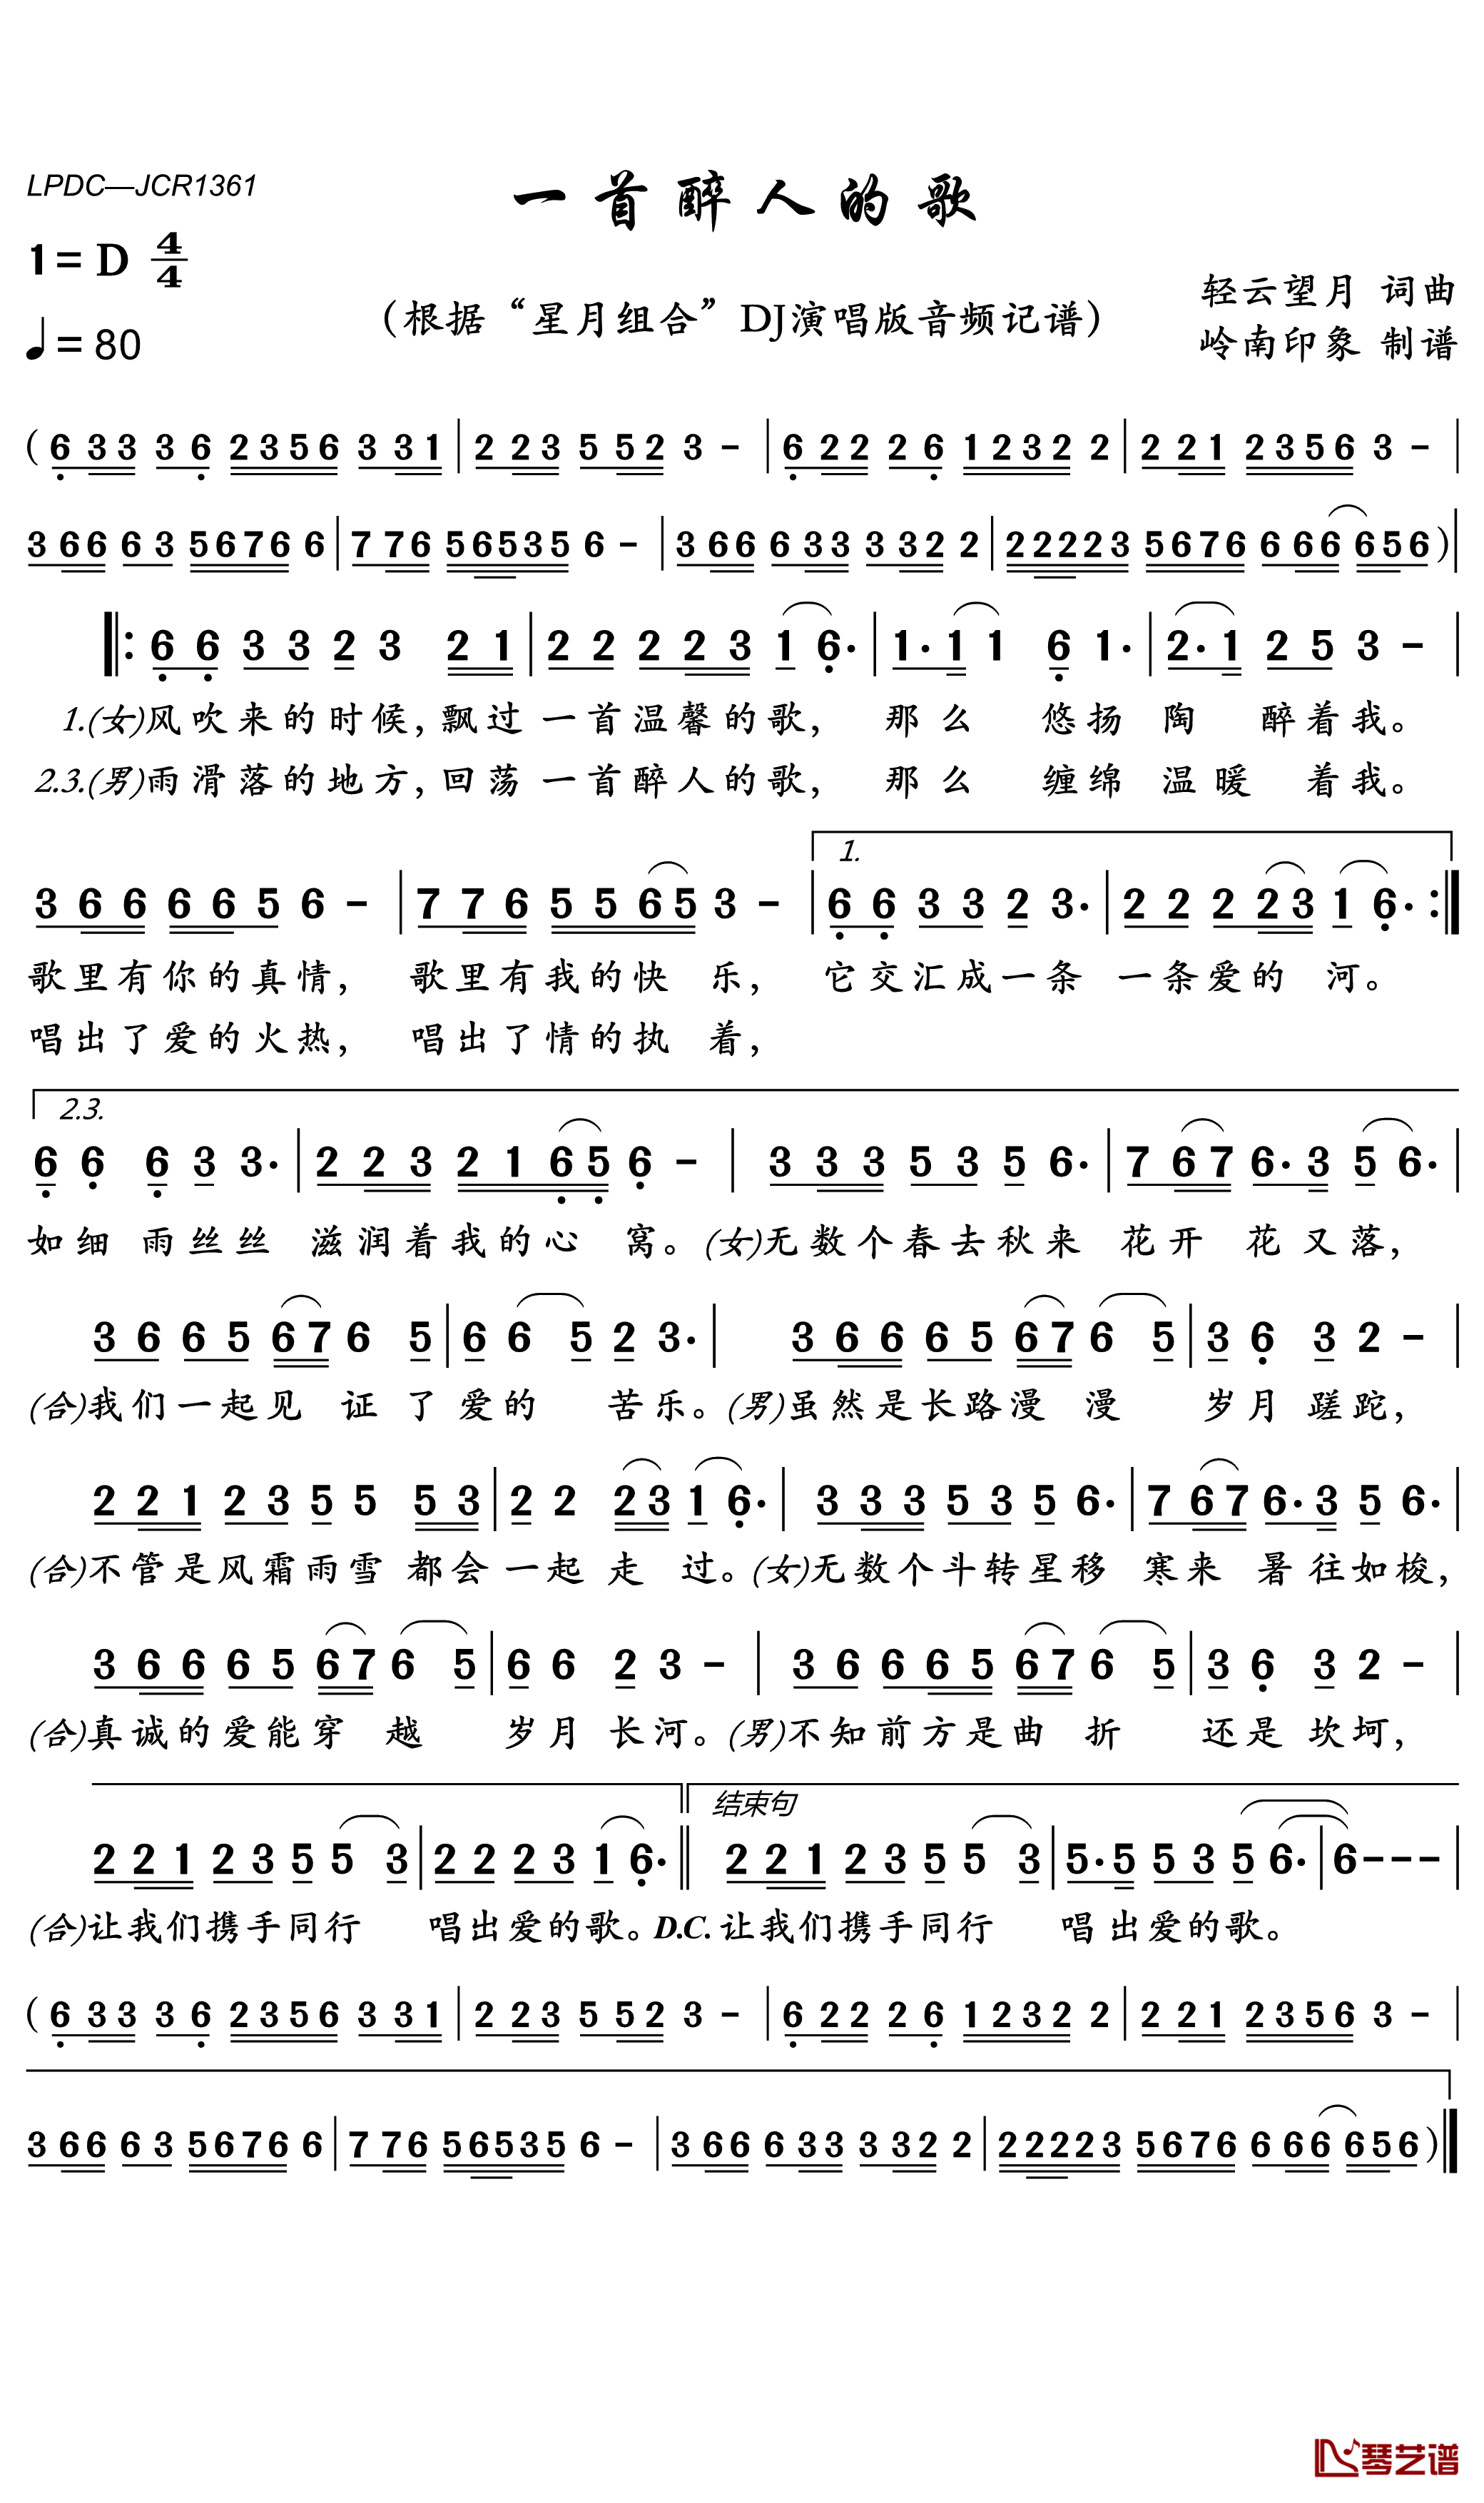 LPDC—JCR1361
一首醉人的歌
1=D 4/4
（根据“星月组合”DJ演唱版音频记谱）
轻云望月 词曲
♩=80
岭南印象 制谱
( 6 3 3 3 6 2 3 5 6 3 3 1 | 2 2 3 5 5 2 3 - | 6 2 2 2 6 1 2 3 2 2 | 2 2 1 2 3 5 6 3 - |
3 6 6 6 3 5 6 7 6 6 | 7 7 6 5 6 5 3 5 6 - | 3 6 6 6 3 3 3 3 2 2 | 2 2 2 2 3 5 6 7 6 6 6 6 6 5 6 ) |
|: 6 6 3 3 2 3 2 1 | 2 2 2 2 3 1 6· | 1· 1 1 6 1· | 2· 1 2 5 3 - |
1.(女)风吹来的时候，飘过一首温馨的歌， 那么 悠扬 陶 醉着我。
2.3.(男)雨滑落的地方，回荡一首醉人的歌， 那么 缠绵 温暖 着我。
1.
3 6 6 6 6 5 6 - | 7 7 6 5 5 6 5 3 - | 6 6 3 3 2 3· | 2 2 2 2 3 1 6· :|
歌里有你的真情， 歌里有我的快 乐， 它交汇成一条 一条爱的 河。
唱出了爱的火热， 唱出了情的执 着，
2.3.
6 6 6 3 3· | 2 2 3 2 1 6 5 6 - | 3 3 3 5 3 5 6· | 7 6 7 6· 3 5 6· |
如细 雨丝丝 滋润着我的心 窝。(女)无数个春去秋来 花开 花又落，
3 6 6 5 6 7 6 5 | 6 6 5 2 3· | 3 6 6 6 5 6 7 6 5 | 3 6 3 2 - |
(合)我们一起见 证了爱的 苦乐。(男)虽然是长路漫 漫 岁月蹉跎，
2 2 1 2 3 5 5 5 3 | 2 2 2 3 1 6· | 3 3 3 5 3 5 6· | 7 6 7 6· 3 5 6· |
(合)不管是风霜雨雪 都会一起走 过。(女)无数个斗转星移 寒来 暑往如梭，
3 6 6 6 5 6 7 6 5 | 6 6 2 3 - | 3 6 6 6 5 6 7 6 5 | 3 6 3 2 - |
(合)真诚的爱能穿 越 岁月长河。(男)不知前方是曲 折 还是坎坷，
结束句
2 2 1 2 3 5 5 3 | 2 2 2 3 1 6· || 2 2 1 2 3 5 5 3 | 5· 5 5 3 5 6· | 6 - - - |
(合)让我们携手同行 唱出爱的歌。D.C.让我们携手同行 唱出爱的歌。
( 6 3 3 3 6 2 3 5 6 3 3 1 | 2 2 3 5 5 2 3 - | 6 2 2 2 6 1 2 3 2 2 | 2 2 1 2 3 5 6 3 - |
3 6 6 6 3 5 6 7 6 6 | 7 7 6 5 6 5 3 5 6 - | 3 6 6 6 3 3 3 3 2 2 | 2 2 2 2 3 5 6 7 6 6 6 6 6 5 6 ) ||
琴艺谱